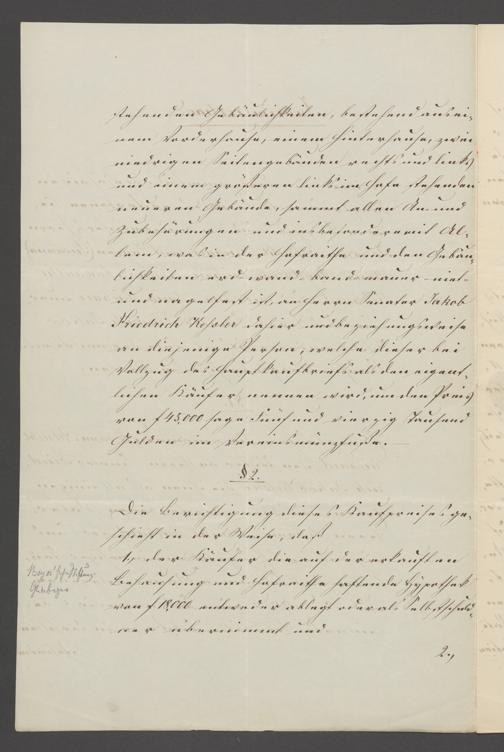 stehenden Gebäulichkeiten, bestehend aus ei-
nem Vorderhause, einem Hinterhause, zwei
niedrigen Seitengebäuden rechts und links
und einem größeren links im Hofe stehenden
neueren Gebäude, sammt allen An- und
Zubehörungen und insbesondere mit Al-
lem, was in der Hofraithe und den Gebäu-
lichkeiten erd- wand- band- mauer- niet-
und nagelfest ist, an Herrn Senator Jakob
Friedrich Kessler dahier und beziehungsweise
an diejenige Person, welche dieser bei
Vollzug des Hauptkaufbriefs als den eigent-
lichen Käufer nennen wird, um den Preis
von f 45,000 sage Fünf und vierzig Tausend
Gulden im Vereinsmünzfuße.
§ 2.
Die Berichtigung dieses Kaufpreises ge-
schieht in der Weise, daß
1, der Käufer die auf der erkauften
Behausung und Hofraithe haftende Hypothek
von f 18000 entweder ablegt oder als Selbstschuld-
ner übernimmt und
2,,